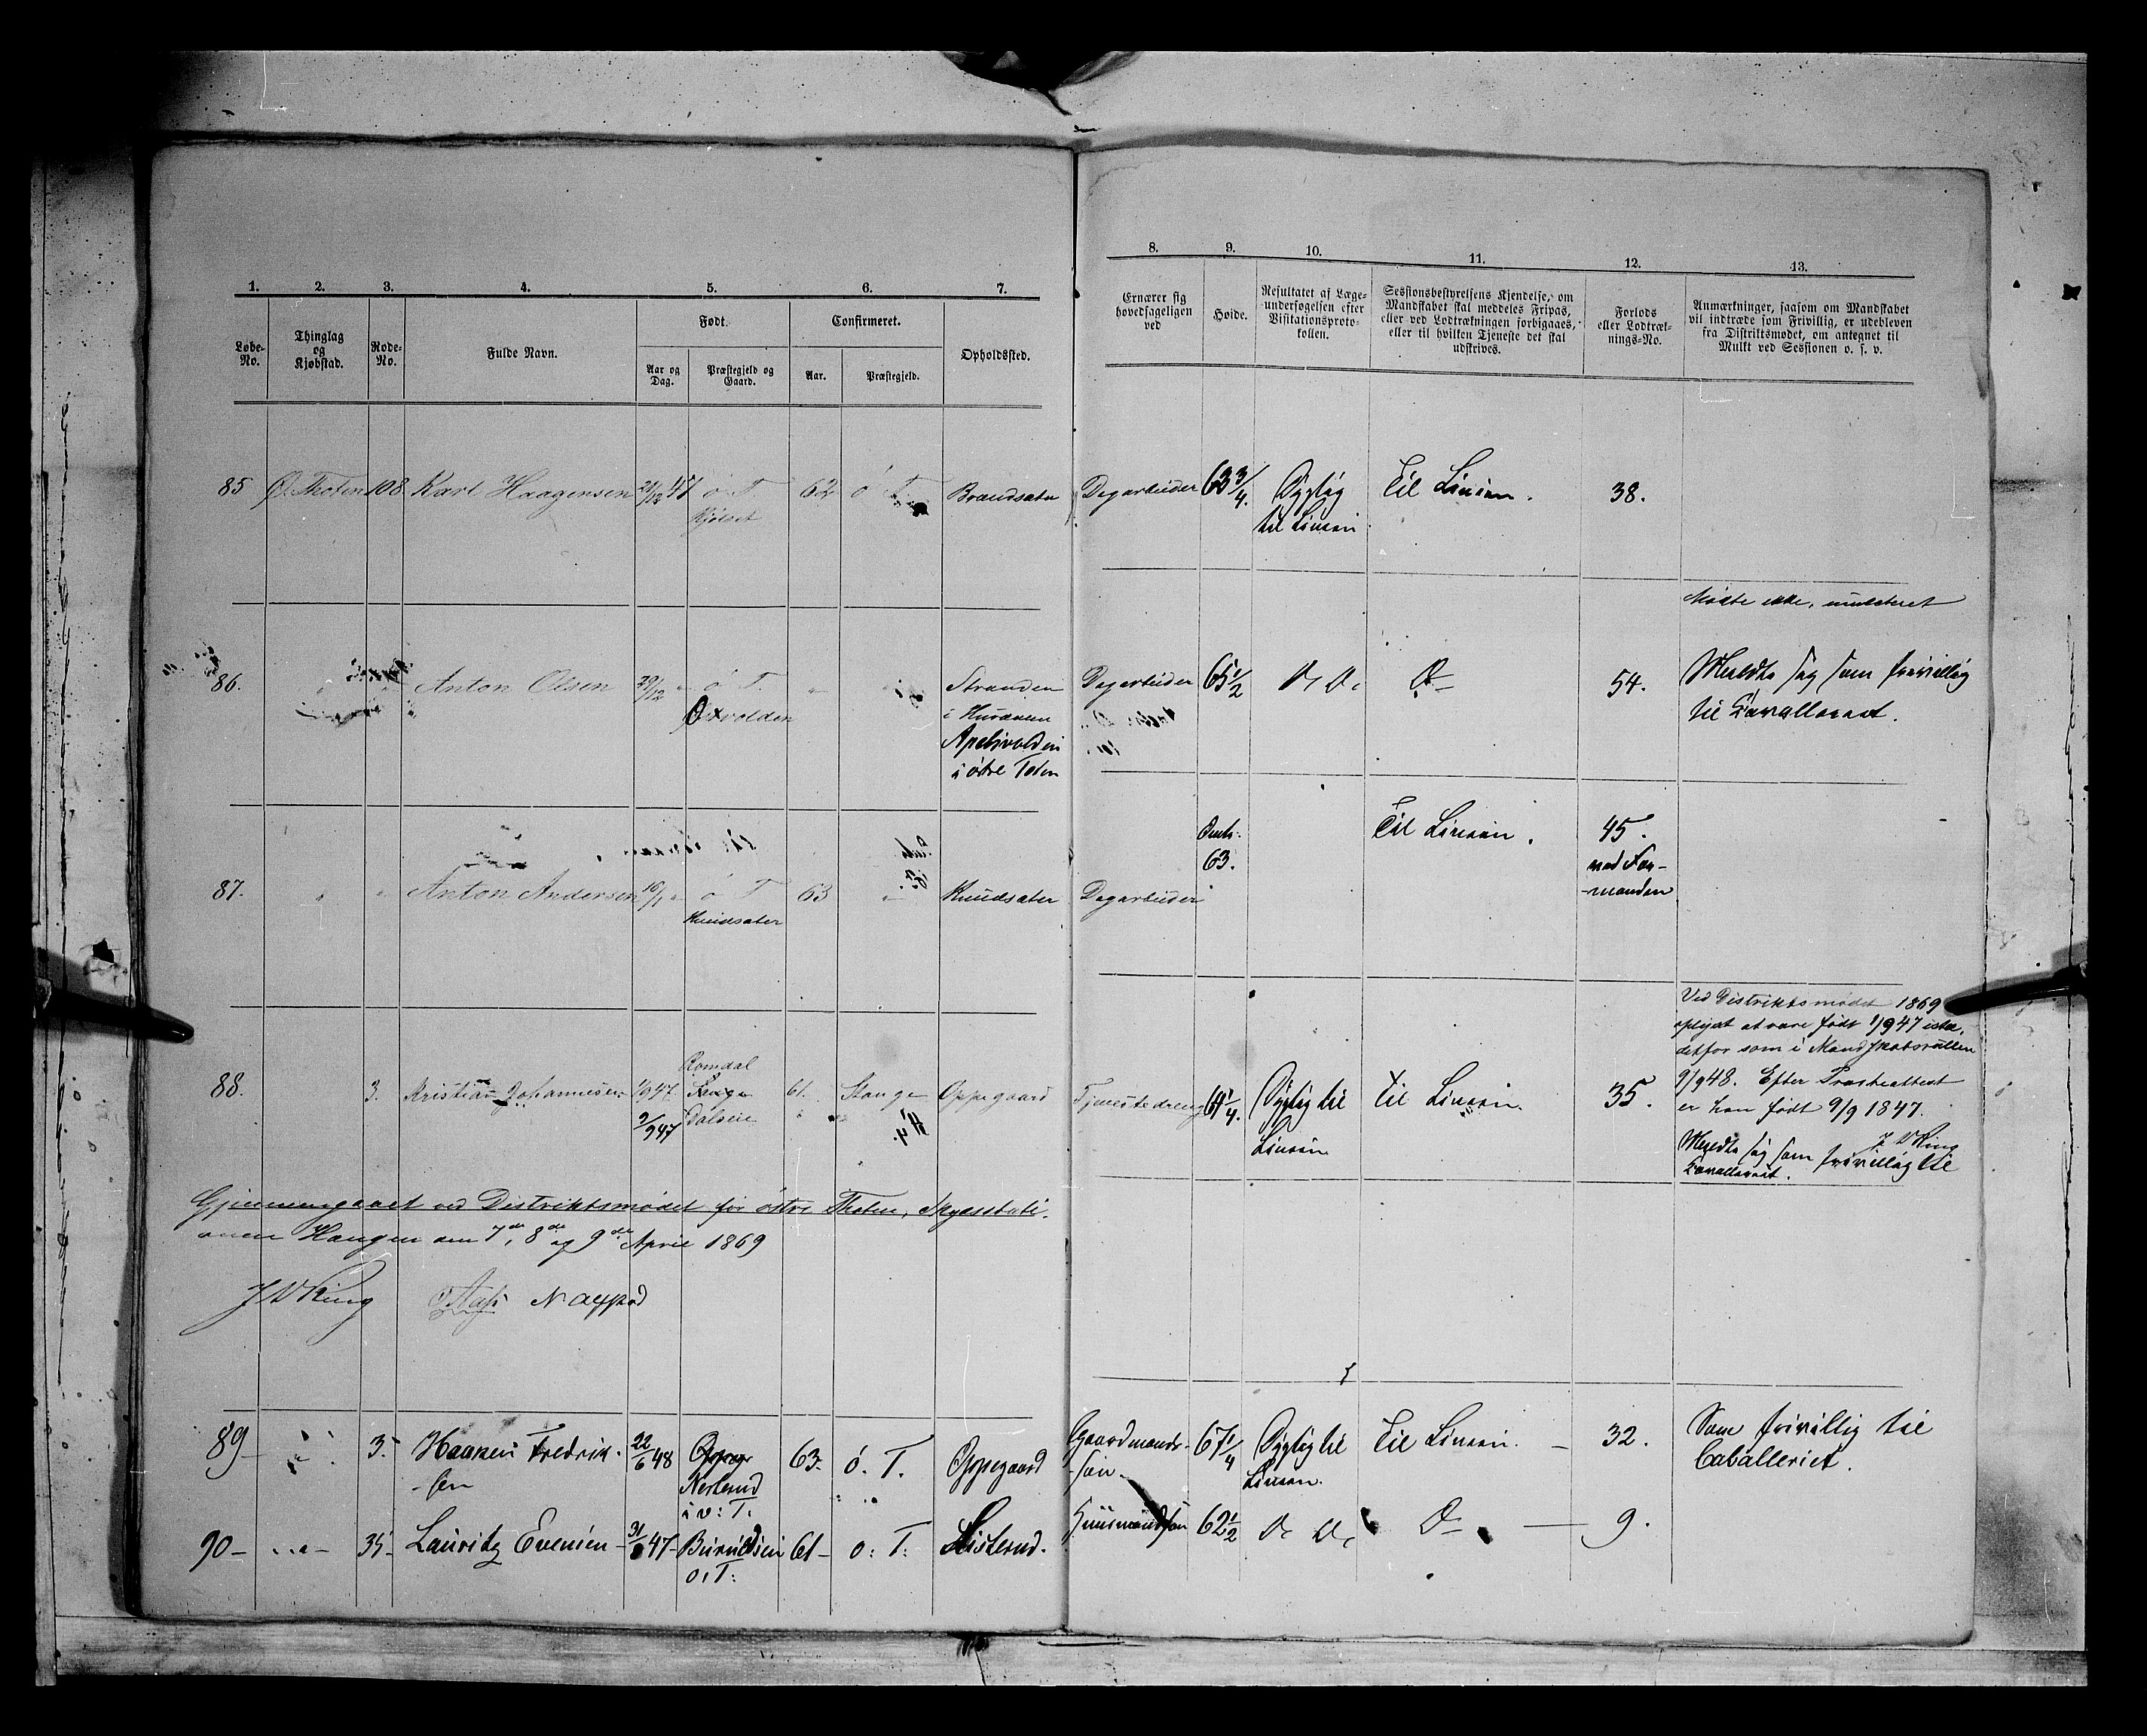 1. 2. 3. 4. 5. 6. 7.
Løbe-No. Thinglag og Kjøbstad. Rode-No. Fulde Navn. Født. Confirmeret. Opholdssted.
Aar og Dag. Præstegjeld og Gaard. Aar. Præstegjeld.
8. 9. 10. 11. 12. 13.
Ernærer sig hovedsageligen ved
Høide.
Resultatet af Læge-undersøgelsen efter Visitationsproto-kollen.
Sessionsbestyrelsens Kjendelse, om Mandskabet skal meddeles Fripas, eller ved Lodtrækningen forbigaaes, eller til hvilken Tjeneste det skal udskrives.
Forlods eller Lodtræk-nings-No.
Anmærkninger, saasom om Mandskabet vil indtræde som Frivillig, er udebleven fra Distriktsmødet, om antegnet til Mulkt ved Sessionen o. s. v.
85 Ø. Thoten 108 Karl Haagensen 21/12 47 ø T. 62 ø T. Brandsæter Dagarbeider 63 3/4. Dygtig Til Linien. 38.
Kjølset
til Linien
Mødte ikke, mulcteret
86. " " Anton Olsen 29/12 " ø T. " " Stranden Dagarbeider 65 1/2 Do Do Do 54. Meldte sig som frivillig
i Hurdalen
til Cavalleriet.
i østre Toten
63.
Til Linien.
45.
med For-
-manden
87. " " Anton Andersen 16/1 " ø T 63 " Knudsæter Dagarbeider
Knudsæter
Ved Distriktsmødet 1869
oplyst at være født 1/9 47 iste-
detfor som i Mandskabsrullen
9/9 48. Efter Præsteattest
er han født 9/9 1847.
J W Ring
Romdal
88. 3. Kristian Johannesen 1/9 47. Stange 61. Stange Oppegaard Tjenestedreng 64 1/4. Dygtig til Til Linien. 35.
9/9 47
Linien
Meldte sig som frivillig til
Cavalleriet.
Gjennemgaaet ved Distriktsmødet for østre Thoten, Skydsstati-
onen Haugen den 7de, 8de og 9de April 1869
J W Ring
89 - " 3. Haaken Fredrik- 22/6 48 63. ø. T. Oppegaard Gaardmands- 67 1/4 Dygtig til Til Linien. - 32. Som frivillig til
-sen
Nerlerud
i v: T.
-søn.
Linien.
Caballeriet.
90 - -"- 35 - Lauritz Evensen - 31/ 47 - 61 - ø: T: Listerud. Huusmandssøn 62 1/2 Do Do Do - 9.
ø: T: